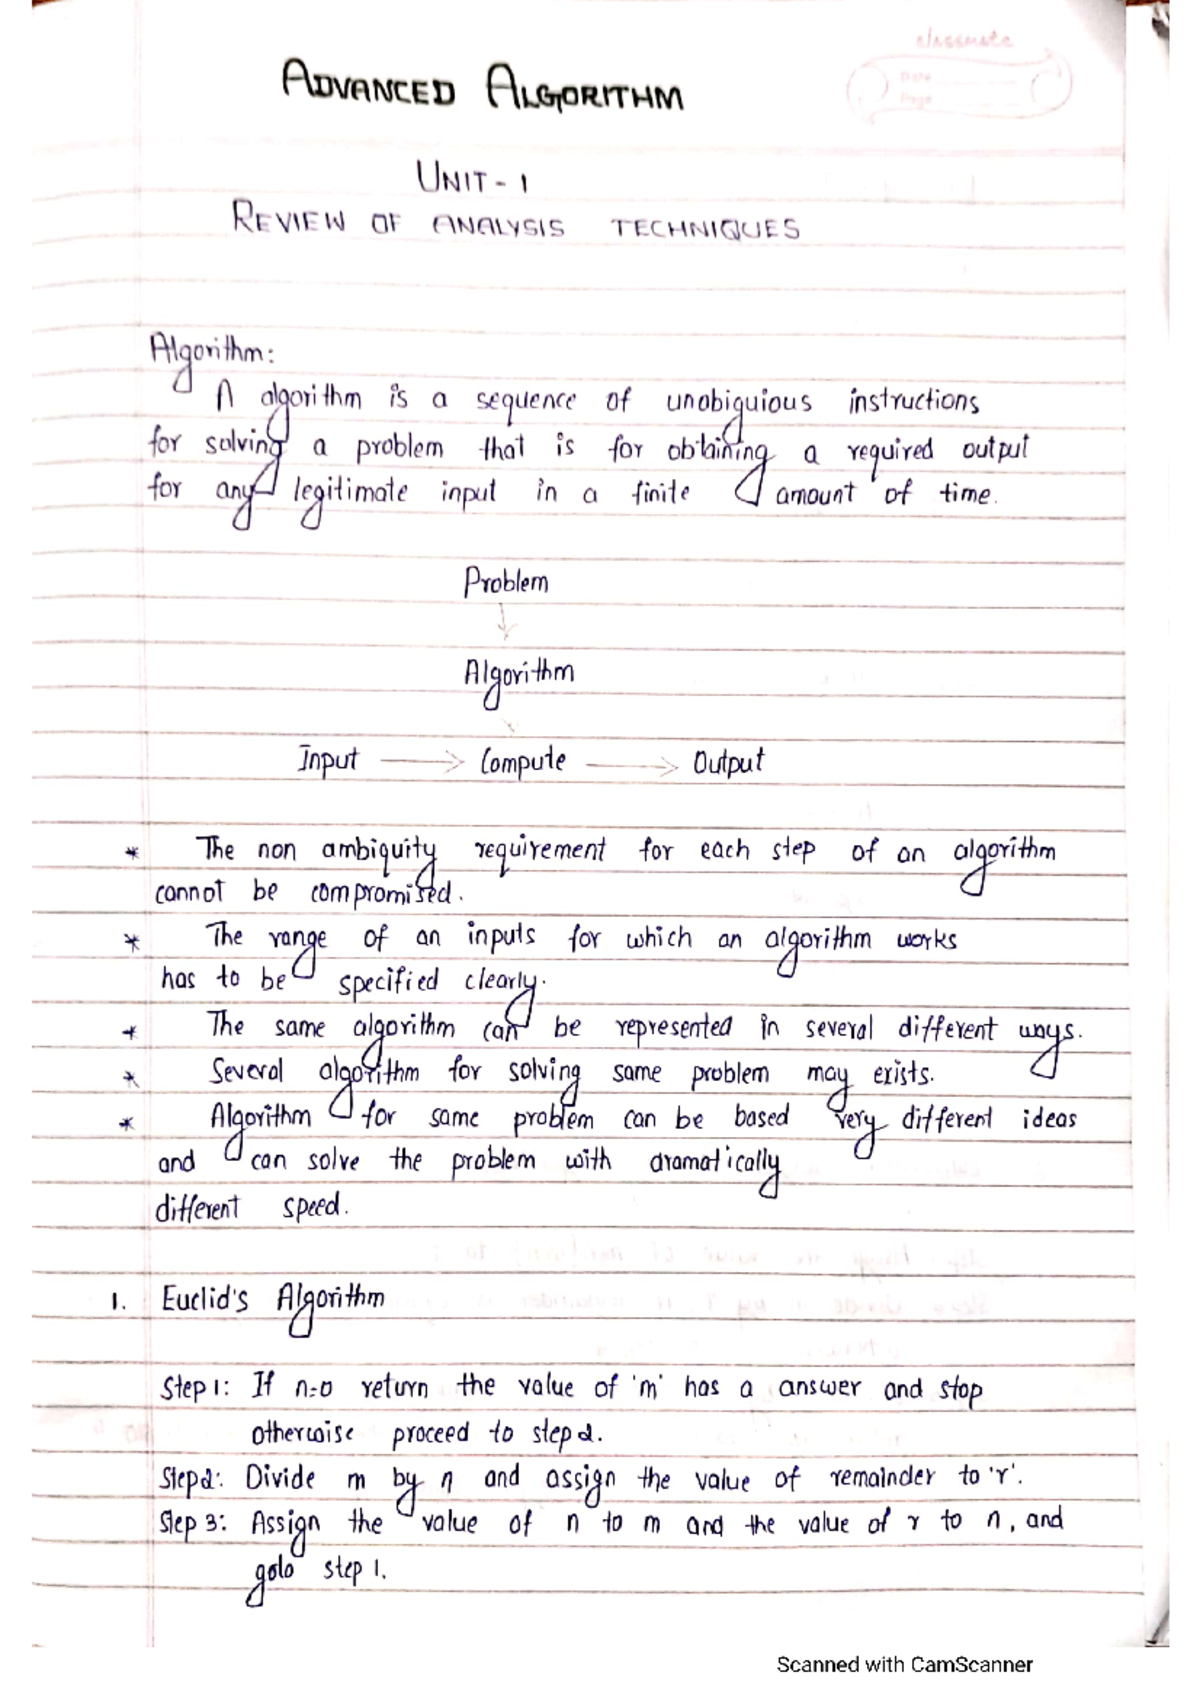 classmate
Date
Page
ADVANCED ALGORITHM
UNIT-1
REVIEW OF ANALYSIS TECHNIQUES
Algorithm:
A algorithm is a sequence of unobiguious instructions
for solving a problem that is for obtaining a required output
for any legitimate input in a finite amount of time.
Problem
Algorithm
Input → Compute → Output
* The non ambiguity requirement for each step of an algorithm
cannot be compromised.
* The range of an inputs for which an algorithm works
has to be specified clearly.
* The same algorithm can be represented in several different ways.
* Several algorithm for solving same problem may exists.
* Algorithm for same problem can be based very different ideas
and can solve the problem with dramatically
different speed.
1. Euclid's Algorithm
Step 1: If n=0 return the value of 'm' has a answer and stop
otherwise proceed to step 2.
Step 2: Divide m by n and assign the value of remainder to 'r'.
Step 3: Assign the value of n to m and the value of r to n, and
goto step 1.
Scanned with CamScanner